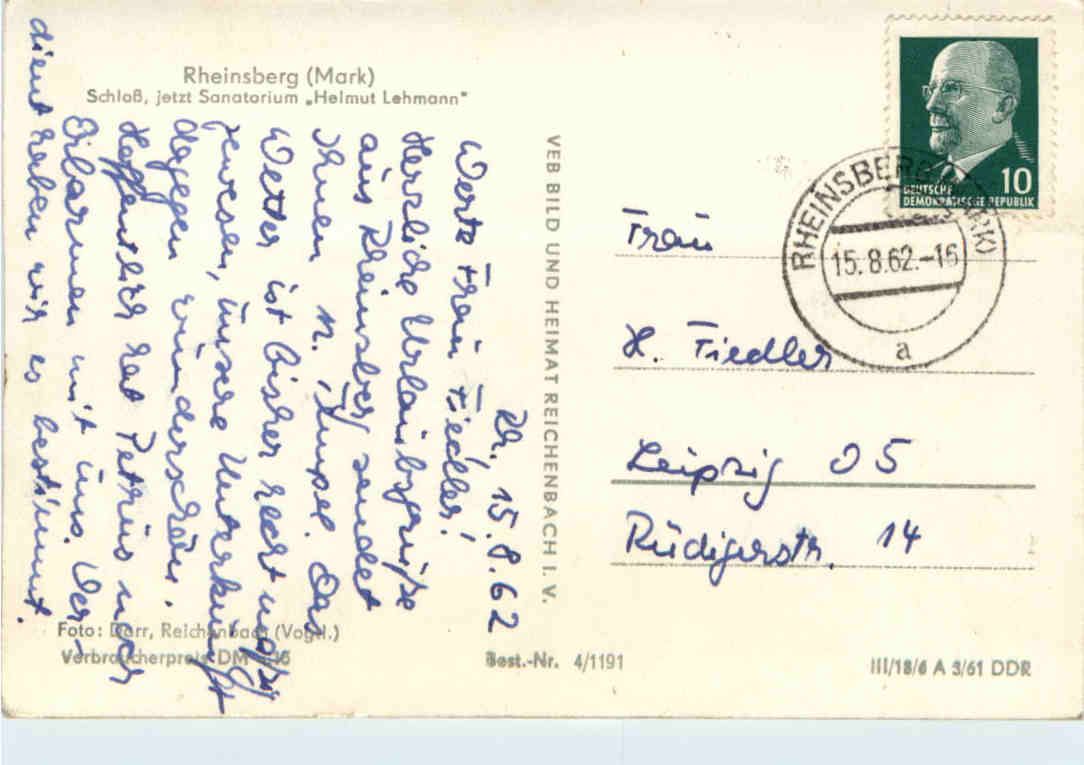 Rheinsberg (Mark)
Schloß, jetzt Sanatorium „Helmut Lehmann"
Rh. 15.8.62
Werte Frau Fiedler!
Herzliche Urlaubsgrüße
aus Rheinsberg sendet
Ihnen M. Das
Wetter ist bisher recht
gewesen, unsere Unterkunft
dagegen wunderschön.
Hoffentlich hat Petrus noch
Erbarmen mit uns. Ver-
dient haben wir es bestimmt.
Foto: Darr, Reichenbach (Vogtl.)
Verbraucherpreis DM
VEB BILD UND HEIMAT REICHENBACH I. V.
Best.-Nr. 4/1191
DEUTSCHE
DEMOKRATISCHE REPUBLIK
10
RHEINSBERG (MARK)
15.8.62.-16
a
Frau
H. Fiedler
Leipzig O 5
Rüdigerstr. 14
III/18/6 A 3/61 DDR